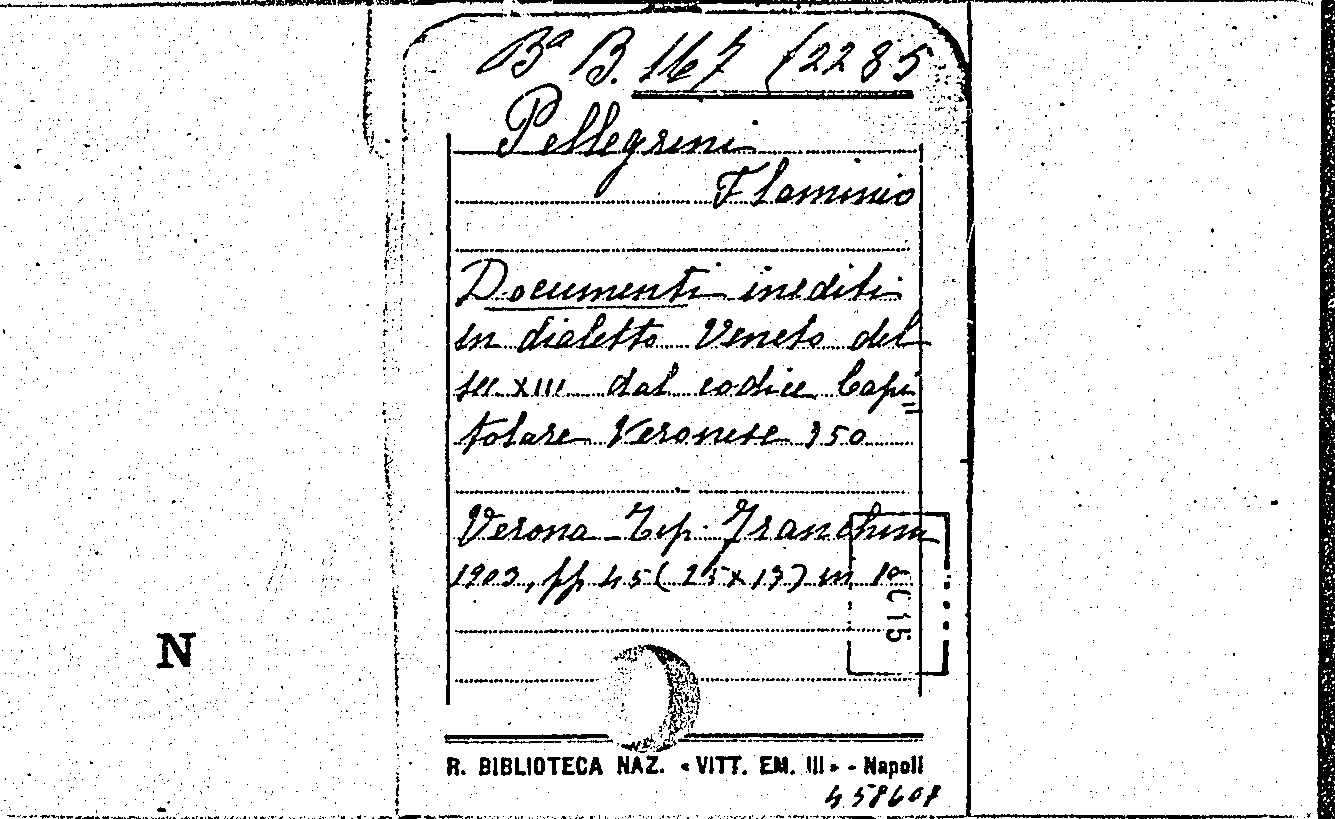 Bª B. 167 (2285
Pellegrini
Flaminio
Documenti inediti
in dialetto Veneto del
sec XIII dal codice Capi
tolare Veronese 350
Verona - Tip. Franchini
1903, pp 45 (25x13) in
C 15
N
R. BIBLIOTECA NAZ. « VITT. EM. III » - Napoli
458608